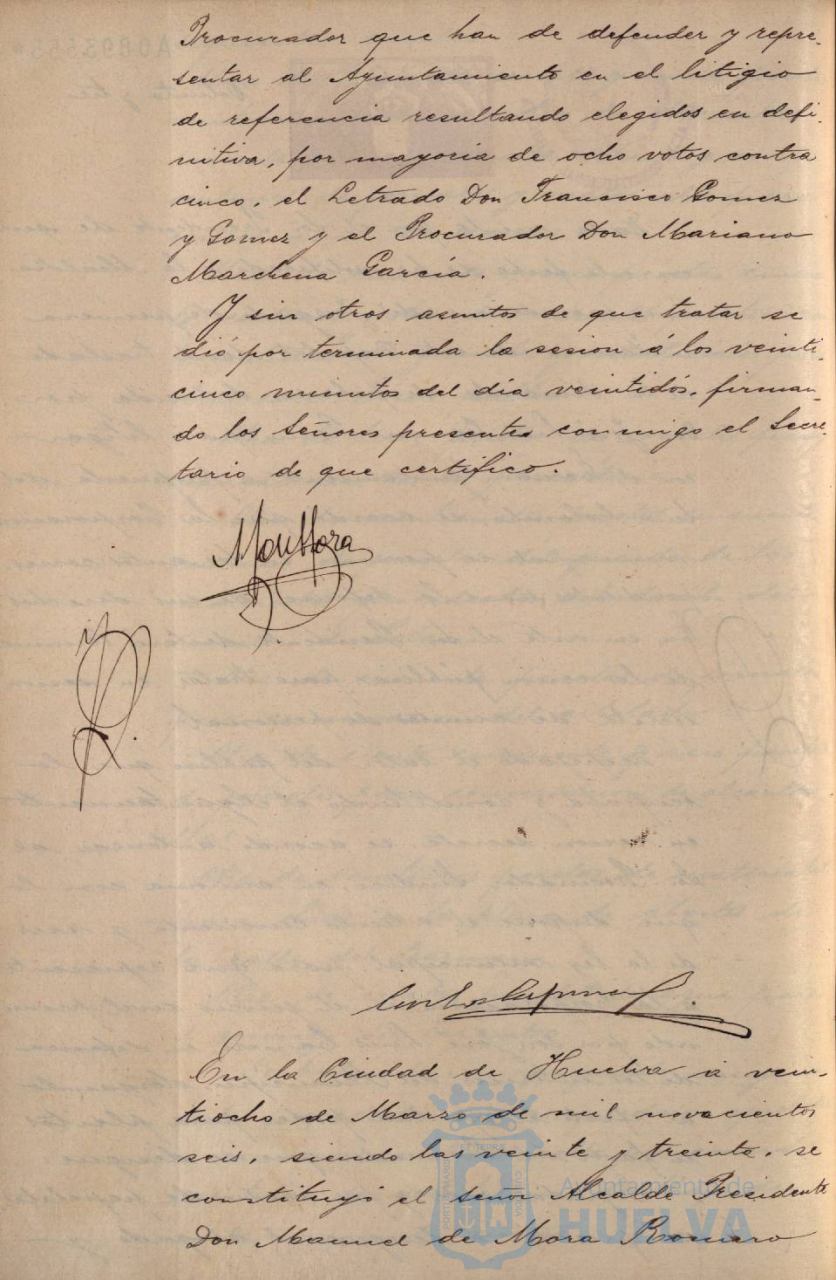 Procurador que han de defender y repre-
sentar al Ayuntamiento en el litigio
de referencia resultando elegidos en defi-
nitiva, por mayoria de ocho votos contra
cinco, el Letrado Don Francisco Gomez
y Gomez y el Procurador Don Mariano
Marchena García.
Y sin otros asuntos de que tratar se
dió por terminada la sesion á los veinti-
cinco minutos del día veintidós, firman-
do los Señores presentes conmigo el Secre-
tario de que certifico.
En la Ciudad de Huelva á vein-
tiocho de Marzo de mil novecientos
seis, siendo las veinte y treinta, se
constituyó el señor Alcalde Presidente
Don Manuel de Mora Romero
Ayuntamiento de
HUELVA